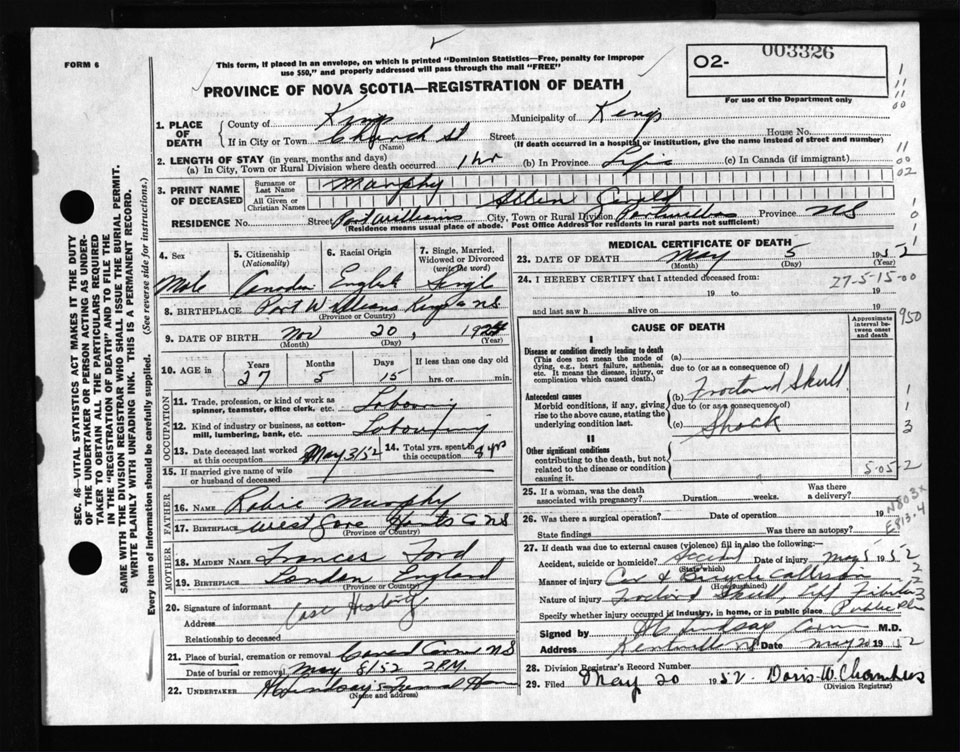 FORM 6
This form, if placed in an envelope, on which is printed "Dominion Statistics—Free, penalty for improper
use $50," and properly addressed will pass through the mail "FREE"
PROVINCE OF NOVA SCOTIA—REGISTRATION OF DEATH
O2- 003326
For use of the Department only
1. PLACE OF DEATH
County of Kings Municipality of Kings
If in City or Town Church St Street House No.
(Name) (If death occurred in a hospital or institution, give the name instead of street and number)
2. LENGTH OF STAY (in years, months and days)
(a) In City, Town or Rural Division where death occurred 1 hr (b) In Province Life (c) In Canada (if immigrant)
3. PRINT NAME OF DECEASED
Surname or Last Name Murphy
All Given or Christian Names Allen Gerald
RESIDENCE No. Street Port Williams City, Town or Rural Division Port Williams Province NS
(Residence means usual place of abode. Post Office Address for residents in rural parts not sufficient)
4. Sex Male
5. Citizenship (Nationality) Canadian
6. Racial Origin English
7. Single, Married, Widowed or Divorced (write the word) Single
8. BIRTHPLACE Port Williams Kings Co NS
(Province or Country)
9. DATE OF BIRTH Nov 20, 1924
(Month) (Day) (Year)
10. AGE in Years 27 Months 5 Days 15 If less than one day old hrs. or min.
OCCUPATION
11. Trade, profession, or kind of work as spinner, teamster, office clerk, etc. Labouring
12. Kind of industry or business, as cotton-mill, lumbering, bank, etc. Labouring
13. Date deceased last worked at this occupation May 3/52
14. Total yrs. spent in this occupation 8 yrs
15. If married give name of wife or husband of deceased
FATHER
16. Name Robie Murphy
17. Birthplace West Gore Hants Co NS
(Province or Country)
MOTHER
18. Maiden Name Frances Ford
19. Birthplace London England
(Province or Country)
20. Signature of informant Case History
Address
Relationship to deceased
21. Place of burial, cremation or removal Canard Corner NS
Date of burial or removal May 8/52 2 P.M.
22. UNDERTAKER H Lindsay's Funeral Home
(Name and address)
MEDICAL CERTIFICATE OF DEATH
23. DATE OF DEATH May 5 1952
(Month) (Day) (Year)
24. I HEREBY CERTIFY that I attended deceased from:
27-5-15-00
19 to 19
and last saw h alive on 19
CAUSE OF DEATH
Approximate interval between onset and death
I
Disease or condition directly leading to death (a)
(This does not mean the mode of dying, e.g., heart failure, asthenia, etc. It means the disease, injury, or complication which caused death.)
due to (or as a consequence of)
(b) Fractured Skull
Antecedent causes
Morbid conditions, if any, giving rise to the above cause, stating the underlying condition last.
due to (or as a consequence of)
(c) Shock
II
Other significant conditions
contributing to the death, but not related to the disease or condition causing it.
5-05-2
950
25. If a woman, was the death associated with pregnancy? Duration weeks. Was there a delivery?
26. Was there a surgical operation? Date of operation 19
State findings Was there an autopsy?
N803x
E813.4
27. If death was due to external causes (violence) fill in also the following:—
Accident, suicide or homicide? Accident Date of injury May 5 1952
(State which)
Manner of injury Car & Bicycle collision
(How sustained)
Nature of injury Fractured Skull, left Fibula
Specify whether injury occurred in industry, in home, or in public place Public Place
Signed by Lindsay Coroner M.D.
Address Kentville NS Date May 20 1952
28. Division Registrar's Record Number
29. Filed May 20 1952 Doris W. Chambers
(Division Registrar)
SEC. 46—VITAL STATISTICS ACT MAKES IT THE DUTY
OF THE UNDERTAKER OR PERSON ACTING AS UNDER-
TAKER TO OBTAIN ALL THE PARTICULARS REQUIRED
IN THE "REGISTRATION OF DEATH" AND TO FILE THE
SAME WITH THE DIVISION REGISTRAR WHO SHALL ISSUE THE BURIAL PERMIT.
WRITE PLAINLY WITH UNFADING INK. THIS IS A PERMANENT RECORD.
Every item of information should be carefully supplied. (See reverse side for instructions.)